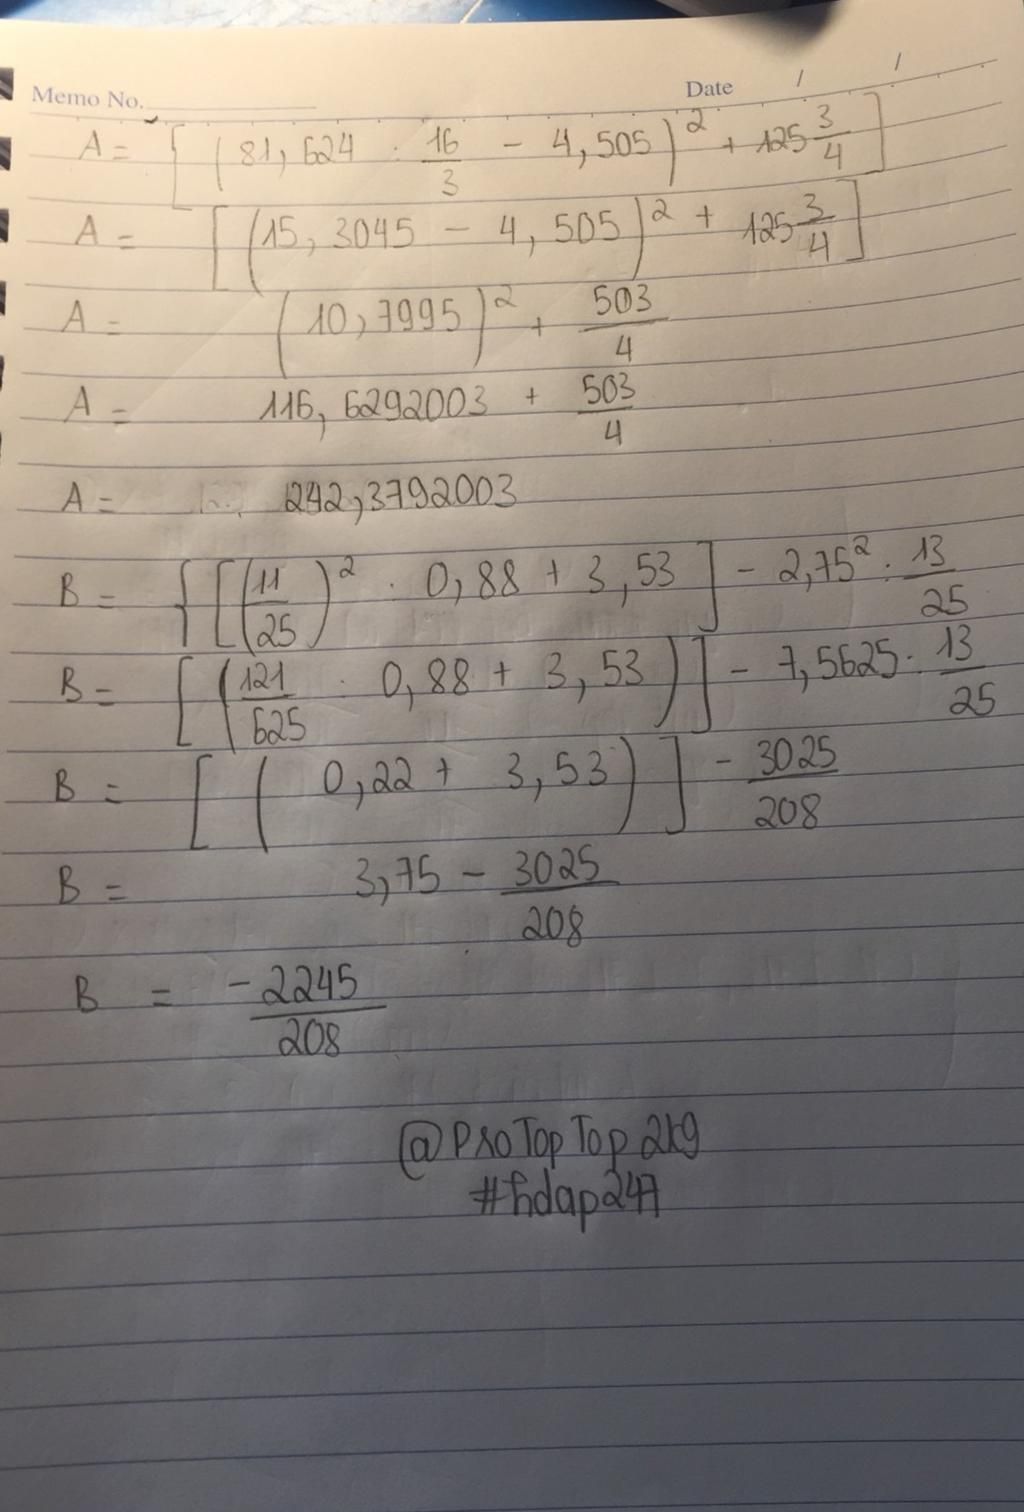 Memo No. Date / /
A = [ (81,624 : 16/3 - 4,505)² + 125 3/4 ]
A = [ (15,3045 - 4,505)² + 125 3/4 ]
A = (10,7995)² + 503/4
A = 116,6292003 + 503/4
A = 242,3792003
B = { [ (11/25)² : 0,88 + 3,53 ] - 2,75² : 13/25
B = [ (121/625 : 0,88 + 3,53) ] - 7,5625 : 13/25
B = [ ( 0,22 + 3,53 ) ] - 3025/208
B = 3,75 - 3025/208
B = -2245/208
@ProTopTop2k9
#hdap247